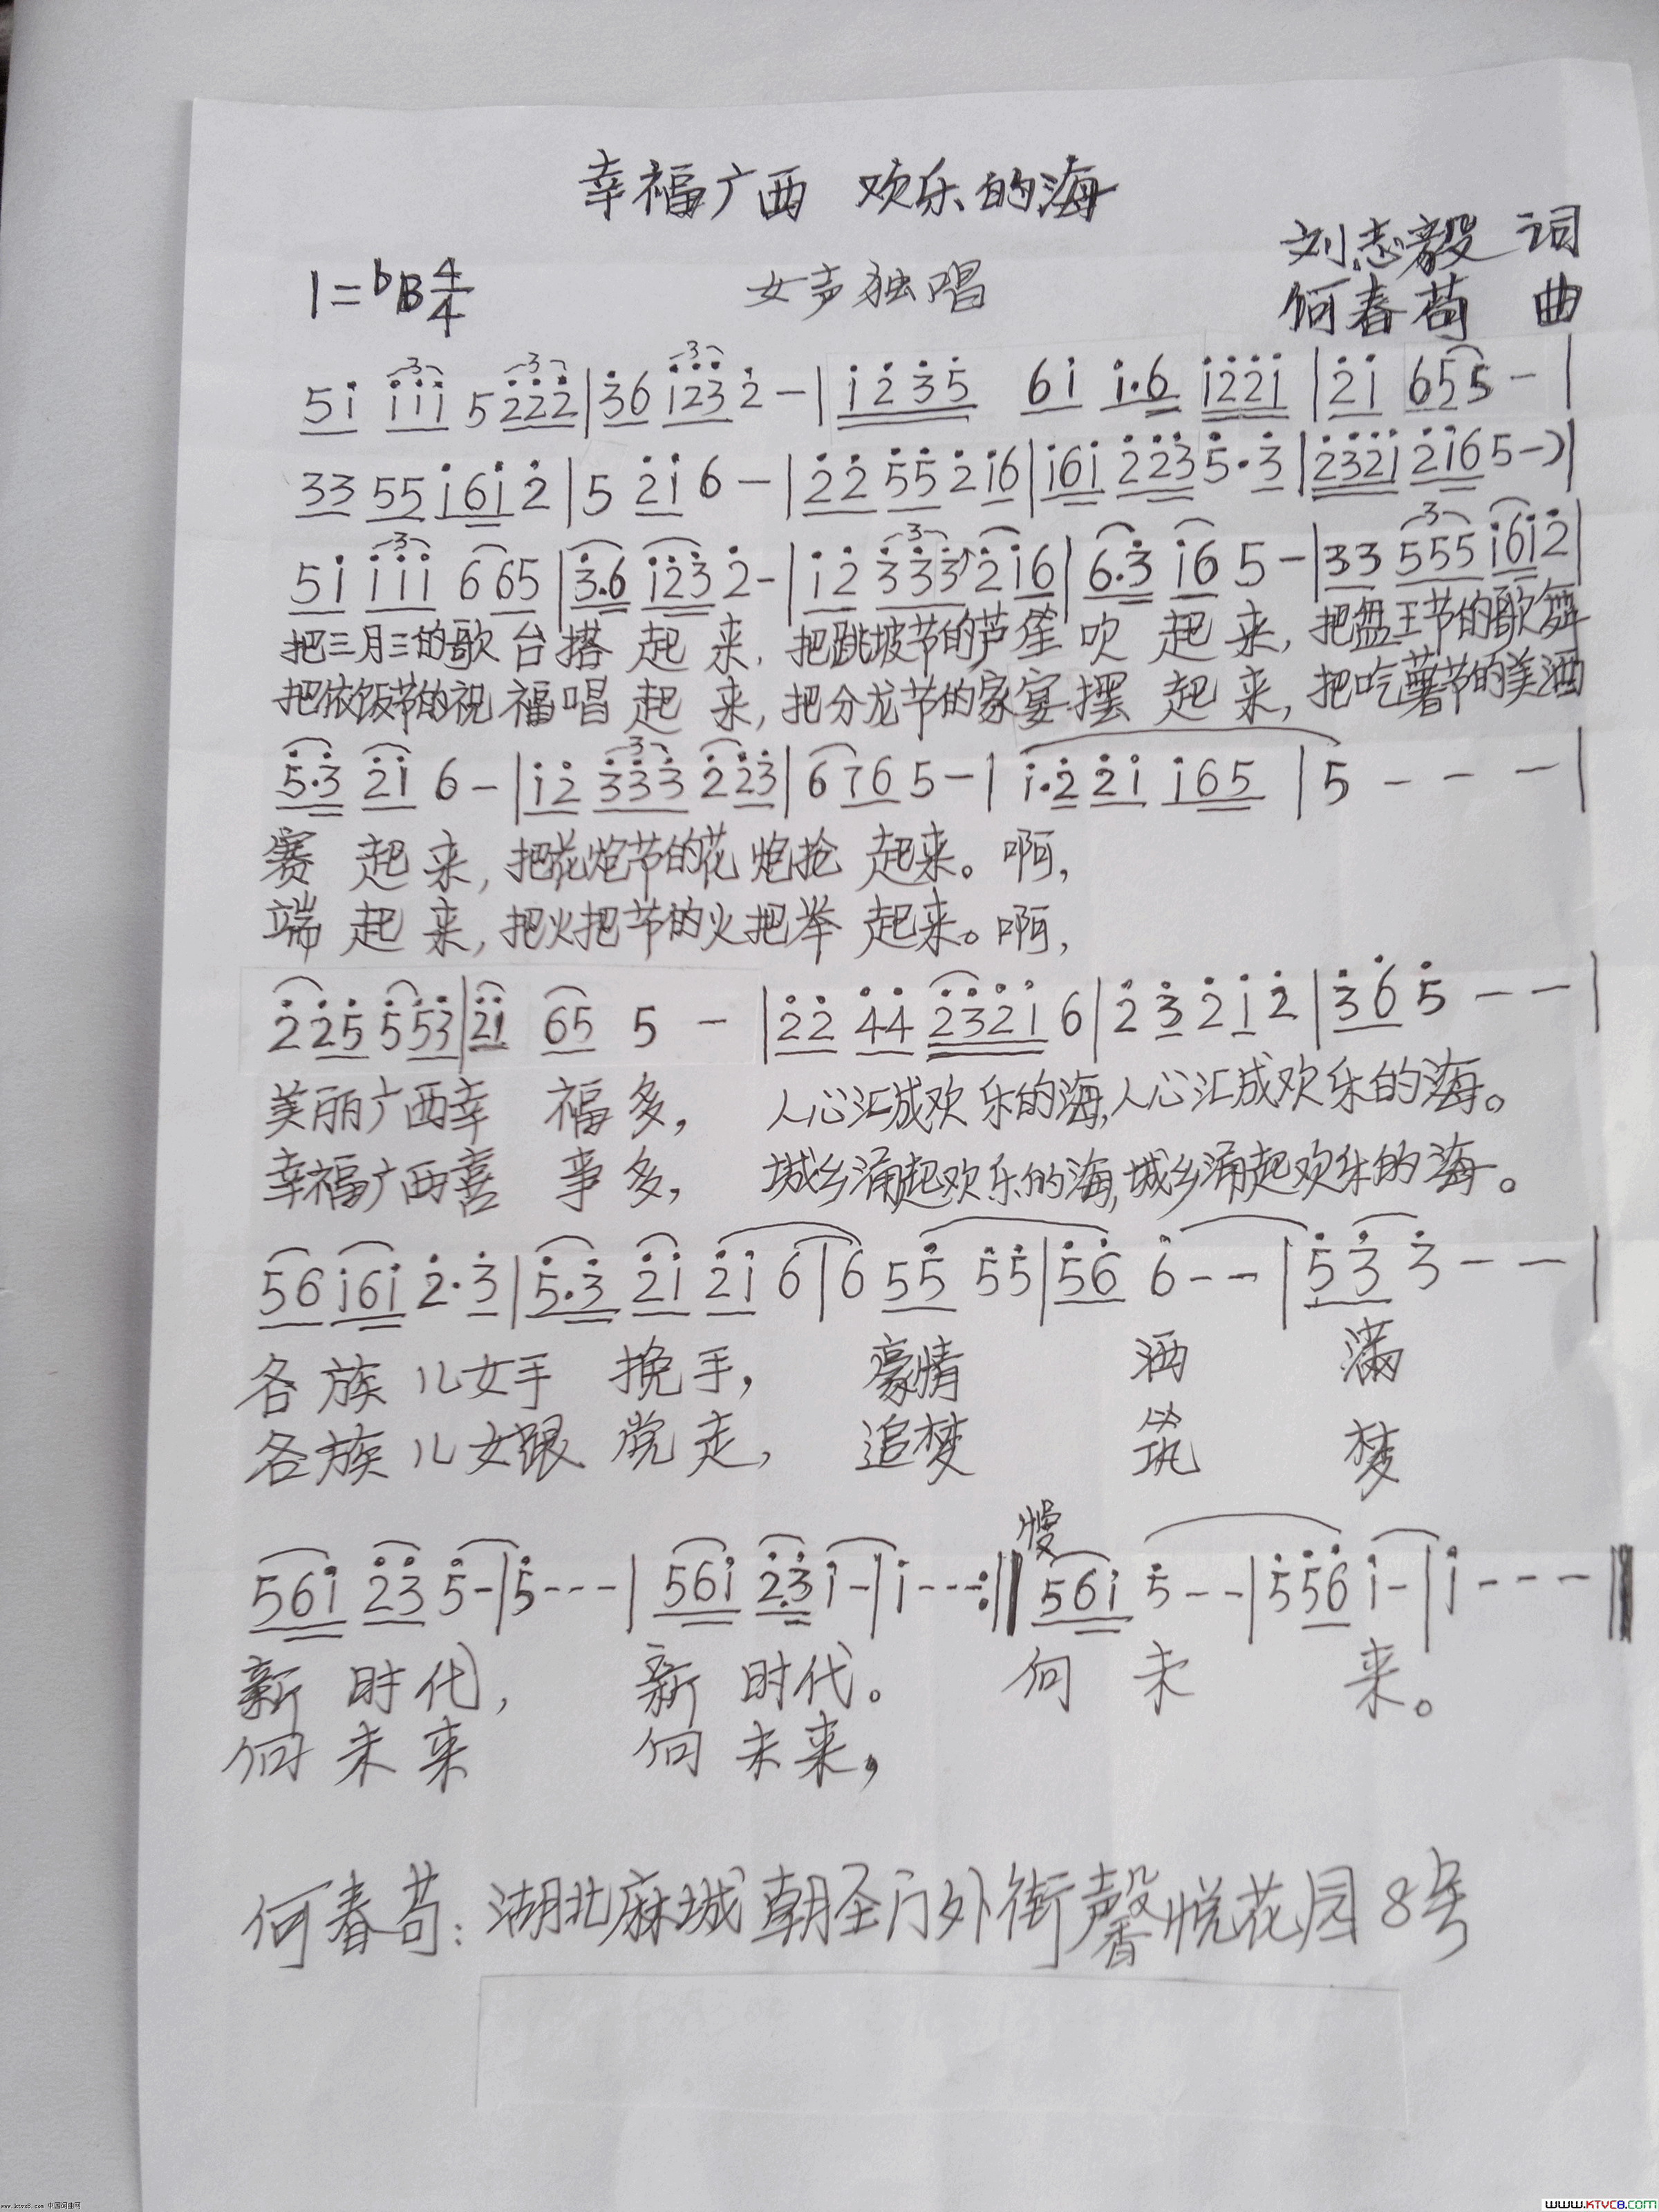 幸福广西 欢乐的海
刘志毅 词
1=bB 4/4 女声独唱 何春苟 曲
5i iii 5222|36 1232-|1235 6i i.6 i22i|2i 655-|
33 55 i6i2|5 2i 6-|22 55 2i6|i6i 2235.3|232i 2i65-)|
5i iii 665|3.6 i232-|i2 333 2i6|6.3 i6 5-|33 555 i6i2|
把三月三的歌台搭起来,把跳坡节的芦笙吹起来,把盘王节的歌舞
把依饭节的祝福唱起来,把分龙节的家宴摆起来,把吃薯节的美酒
5.3 2i 6-|i2 333 223|676 5-|i.2 2i i65|5---|
赛起来,把花炮节的花炮抢起来。啊,
端起来,把火把节的火把举起来。啊,
225 553|2i 65 5-|22 44 232i 6|2 3 2 i 2|365--|
美丽广西幸福多,人心汇成欢乐的海,人心汇成欢乐的海。
幸福广西喜事多,城乡涌起欢乐的海,城乡涌起欢乐的海。
56 i6i 2.3|5.3 2i 2i 6|6 55 55|56 6--|53 3--|
各族儿女手挽手,豪情洒满
各族儿女跟党走,追梦筑梦
慢
56i 23 5-|5---|56i 23 i-|i---:‖56i 5--|556 i-|i---‖
新时代,新时代。向未来。
向未来 向未来,
何春苟:湖北麻城朝圣门外街馨悦花园8号
www.ktvc8.com 中国词曲网
WWW.KTVC8.COM